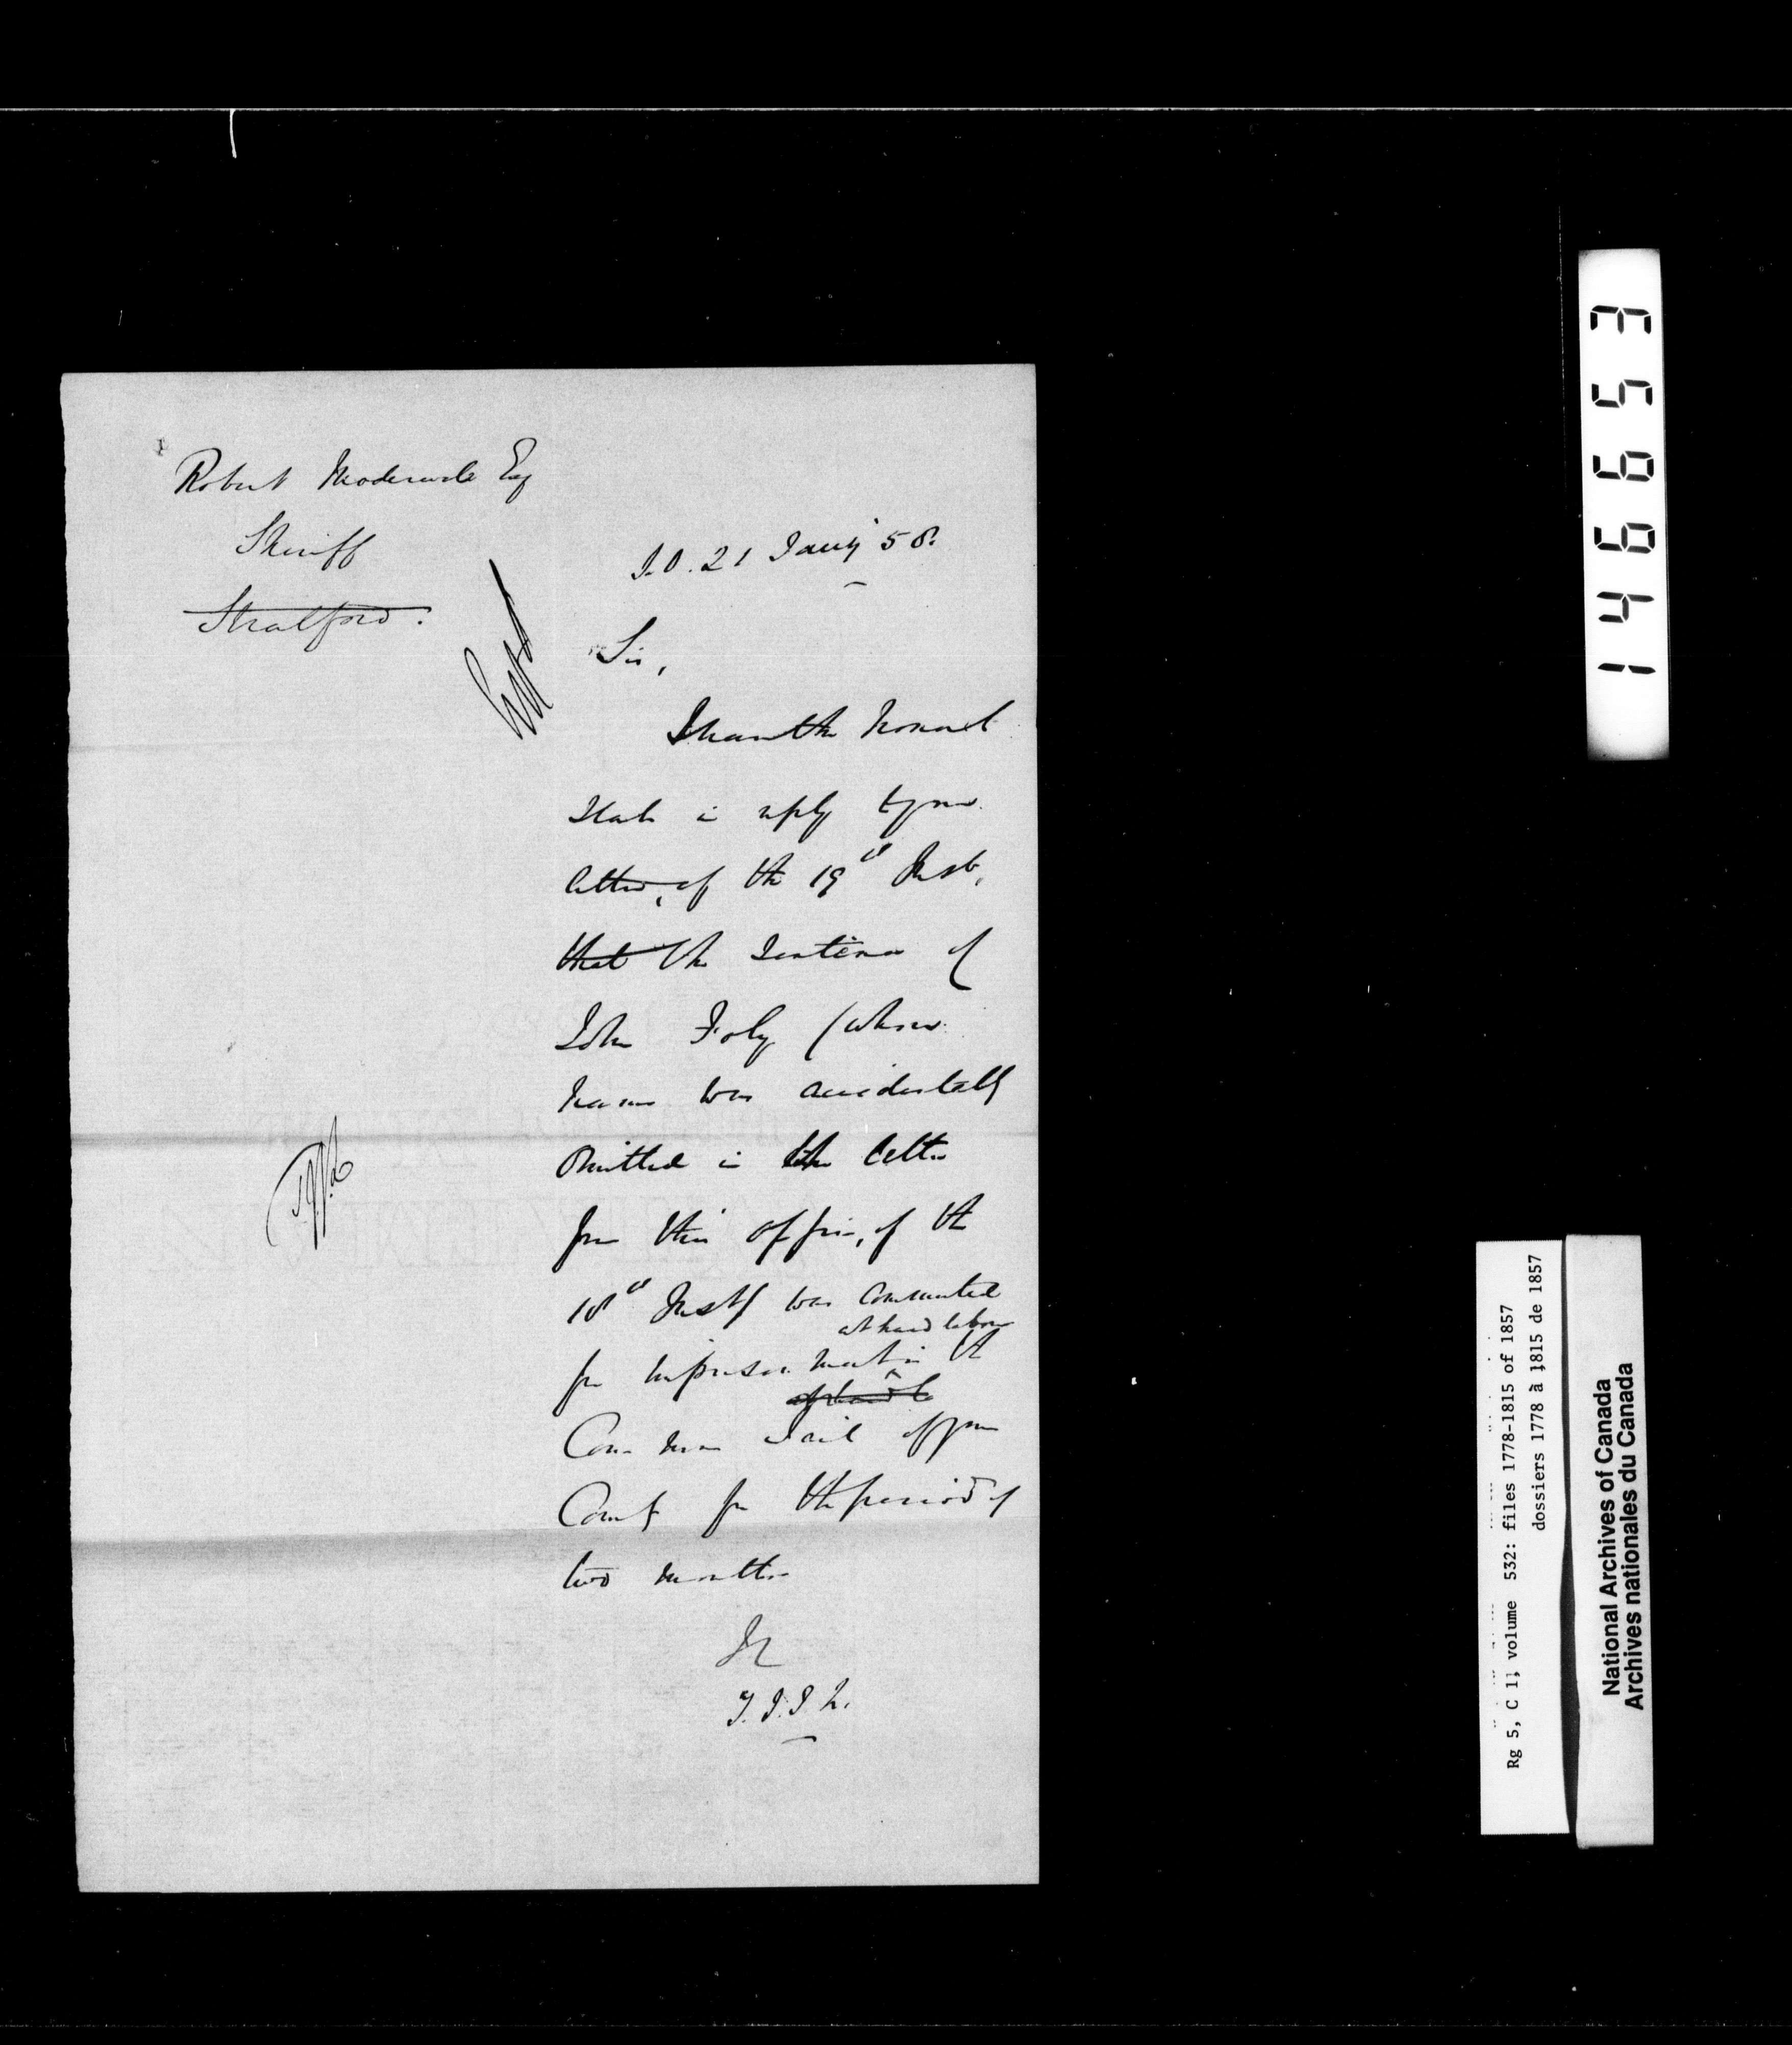 Robert Moderwell Esq
Sheriff
Stratford.
S.O. 21 Jany 58.
Sir,
I have the honor to
State in reply to your
letter, of the 19th Inst,
that the Sentence of
John Foly (whose
name was accidentally
Omitted in the letter
from this office, of the
18th Inst) was Commuted
at hard labour
for imprisonment in the
Common Jail of your
County for the period of
two months
T.J.J.L.
146653
Rg 5, C 1, volume 532: files 1778-1815 of 1857
dossiers 1778 à 1815 de 1857
National Archives of Canada
Archives nationales du Canada